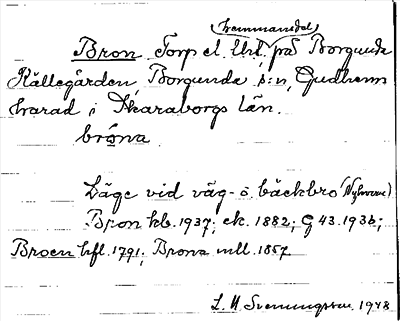 (hemmansdel)
Bron Torp el. Utl. på Borgunda
Källegården, Borgunda s:n, Gudhems
härad i Skaraborgs län.
bròna.
Läge vid väg- o. bäckbro (Nyhvarn)
Bron kb. 1937; ek. 1882; G 43. 1936;
Broen hfl. 1791; Brona mll. 1857
L. M Svenungsson 1948